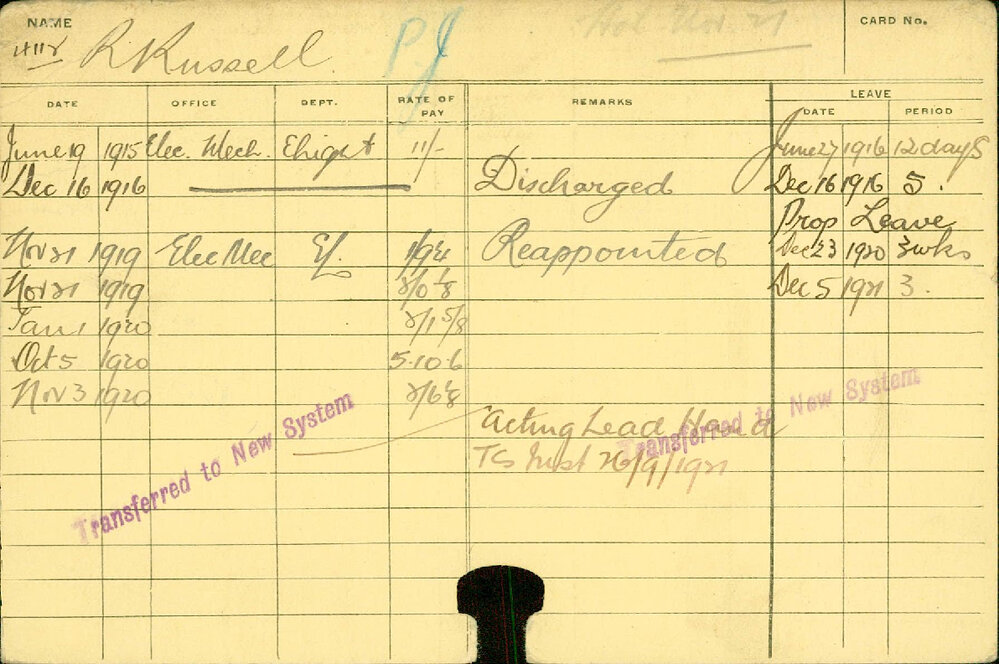 NAME
R Russell
P.J
CARD No.
DATE OFFICE DEPT. RATE OF PAY REMARKS LEAVE
DATE PERIOD
June 19 1915 Elec. Mech. Ehight 11/- June 27 1916 12 days
Dec 16 1916 Discharged Dec 16 1916 5.
Prop Leave
Nov 21 1919 Elec Mec El. Reappointed Dec 23 1920 3 wks
Nov 21 1919 2/0 1/8 Dec 5 1921 3.
Jan 1 1920 2/1 5/8
Oct 5 1920 5.10.6
Nov 3 1920
Acting Lead Hand
26/9/1921
Transferred to New System
Transferred to New System